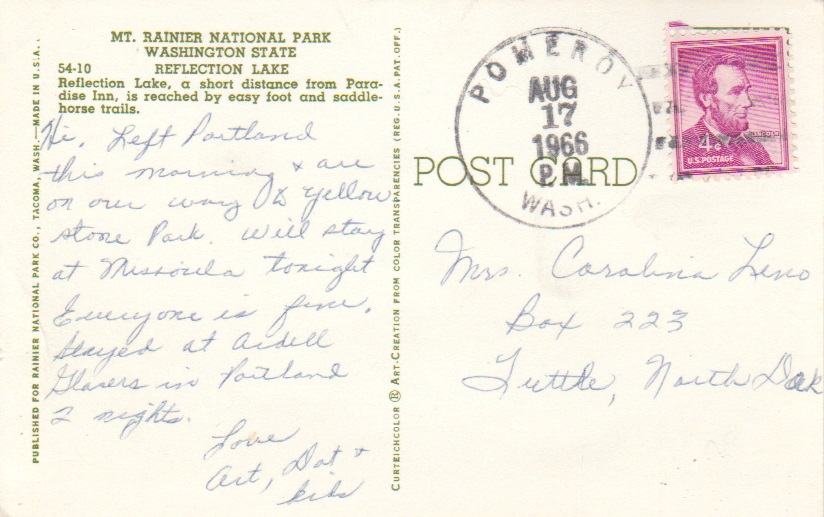 MT. RAINIER NATIONAL PARK
WASHINGTON STATE
54-10 REFLECTION LAKE
Reflection Lake, a short distance from Para-
dise Inn, is reached by easy foot and saddle-
horse trails.
Hi, Left Portland
this morning & are
on our way to Yellow
stone Park. Will stay
at Missoula tonight
Everyone is fine.
Stayed at Ardell
Glasers in Portland
2 nights.
Love
Art, Dot &
kids
PUBLISHED FOR RAINIER NATIONAL PARK CO., TACOMA, WASH.—MADE IN U.S.A.
CURTEICHCOLOR ® ART-CREATION FROM COLOR TRANSPARENCIES (REG. U.S.A. PAT. OFF.)
POST CARD
POMEROY
AUG
17
1966
P.M.
WASH.
LINCOLN
4¢
U.S. POSTAGE
Mrs. Carolina Leno
Box 223
Tuttle, North Dak